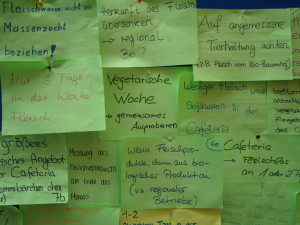 Fleischwaren nicht aus
Massenzucht
beziehen!
Herkunft des Fleisch
überdenken
→ regional
Bio?
Auf angemessene
Tierhaltung achten
(z.B. Fleisch vom Bio-Bauernhof)
Nur 3 Tage
in der Woche
Fleisch
Vegetarische
Woche
→ gemeinsames
Ausprobieren
Weniger Fleisch und
Sojawaren in der
Cafeteria
größeres
Angebot
Cafeteria
7b
Messung des
Fleischverbrauchs
am Ende des
Monats
Wenn Fleischpro-
dukte, dann aus bio-
logischer Produktion
(v.a. regionaler
Betriebe)
Cafeteria
→ Fleischfrei
an 1 oder 2
1-2